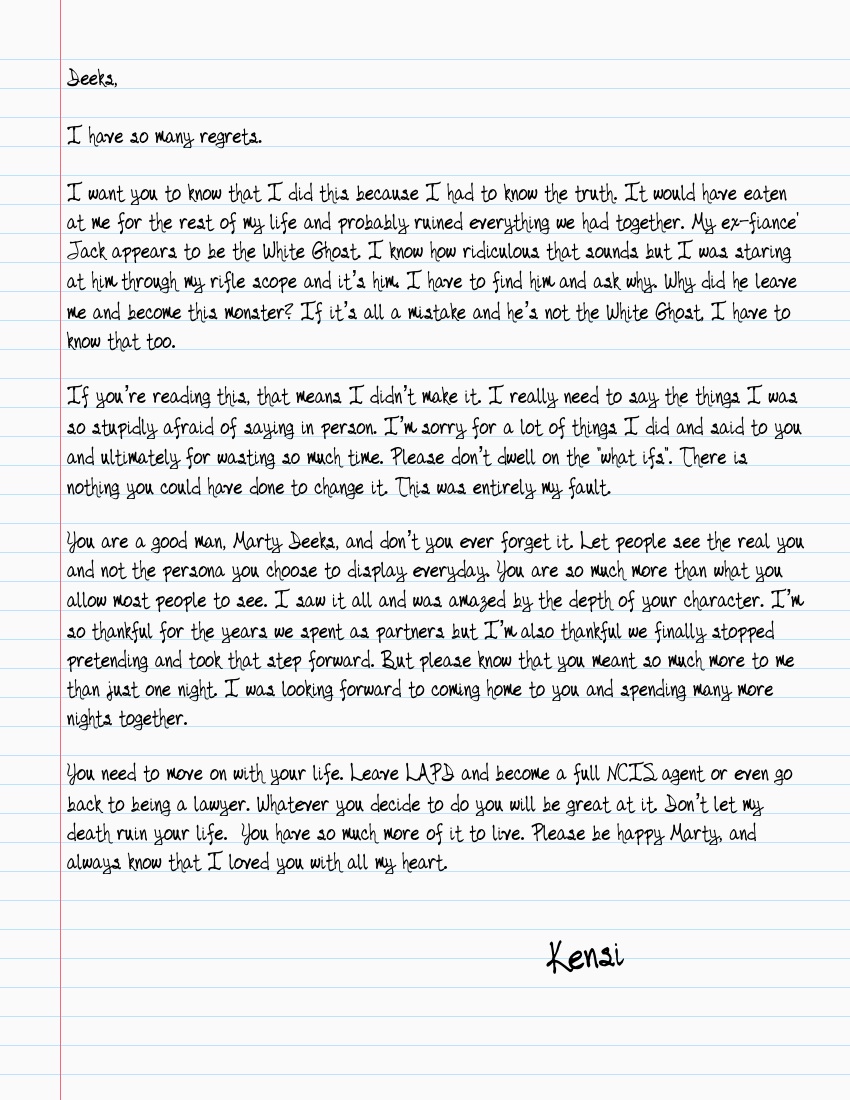 Deeks,
I have so many regrets.
I want you to know that I did this because I had to know the truth. It would have eaten
at me for the rest of my life and probably ruined everything we had together. My ex-fiance'
Jack appears to be the White Ghost. I know how ridiculous that sounds but I was staring
at him through my rifle scope and it's him. I have to find him and ask why. Why did he leave
me and become this monster? If it's all a mistake and he's not the White Ghost, I have to
know that too.
If you're reading this, that means I didn't make it. I really need to say the things I was
so stupidly afraid of saying in person. I'm sorry for a lot of things I did and said to you
and ultimately for wasting so much time. Please don't dwell on the "what ifs". There is
nothing you could have done to change it. This was entirely my fault.
You are a good man, Marty Deeks, and don't you ever forget it. Let people see the real you
and not the persona you choose to display everyday. You are so much more than what you
allow most people to see. I saw it all and was amazed by the depth of your character. I'm
so thankful for the years we spent as partners but I'm also thankful we finally stopped
pretending and took that step forward. But please know that you meant so much more to me
than just one night. I was looking forward to coming home to you and spending many more
nights together.
You need to move on with your life. Leave LAPD and become a full NCIS agent or even go
back to being a lawyer. Whatever you decide to do you will be great at it. Don't let my
death ruin your life. You have so much more of it to live. Please be happy Marty, and
always know that I loved you with all my heart.
Kensi